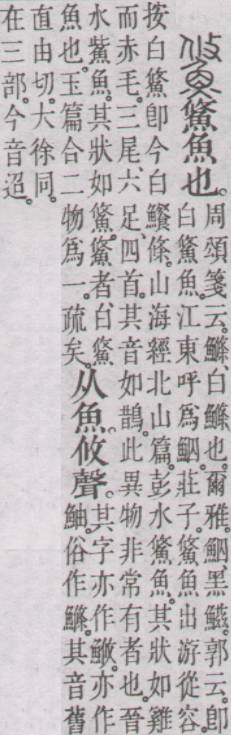 鯈魚也。
周頌箋云。鰷、白鰷也。爾雅。鮂、黑鰦。郭云。卽
白鯈魚。江東呼爲鮂。莊子。鯈魚出游從容。
按白鯈卽今白條。山海經北山篇。彭水鯈魚。其狀如雞
而赤毛。三尾、六足、四首。其音如鵲。此異物非常有者也。晉
水鮆魚。其狀如鯈。鯈者、白鯈
魚也。玉篇合二物爲一。疏矣。
从魚。攸聲。
其字亦作、亦作
鮋。俗作鰷。其音舊
直由切。大徐同。
在三部。今音迢。